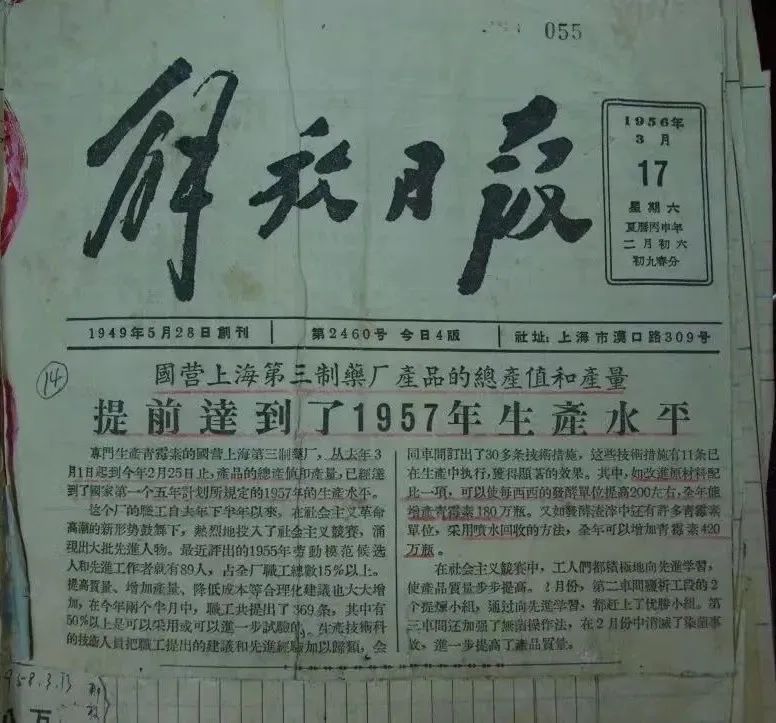 055
解放日报
1956年
3月
17
星期六
夏曆丙申年
二月初六
初九春分
1949年5月28日創刊
第2460号 今日4版
社址:上海市漢口路309号
14
國营上海第三制藥厂產品的總產值和產量
提前達到了1957年生產水平
專門生產青霉素的國营上海第三制藥厂,从去年3
月1日起到今年2月25日止,產品的總產值和產量,已經達
到了國家第一个五年計划所規定的1957年的生產水平。
这个厂的職工自去年下半年以來,在社会主义革命
高潮的新形勢鼓舞下,熱烈地投入了社会主义競賽,涌
現出大批先進人物。最近評出的1955年劳動模范候选
人和先進工作者就有89人,占全厂職工總数15%以上。
提高質量、增加產量、降低成本等合理化建議也大大增
加,在今年兩个半月中,職工共提出了369条,其中有
50%以上是可以采用或可以進一步試驗的。生產技術科
的技術人員把職工提出的建議和先進經驗加以歸類,会
同車間訂出了30多条技術措施,这些技術措施有11条已
在生產中执行,獲得顯著的效果。其中,如改進原材料配
比一項,可以使每西西的發酵單位提高200左右,全年能
增產青霉素180万瓶。又如發酵法滓中还有許多青霉素
單位,采用噴水回收的方法,全年可以增加青霉素420
万瓶。
在社会主义競賽中,工人們都積極地向先進学習,
使產品質量步步提高。2月份,第二車間 工段的2
个提煉小組,通过向先進学習,都赶上了优勝小組。第
三車間还加强了無菌操作法,在2月份中消滅了染菌事
故,進一步提高了產品質量。